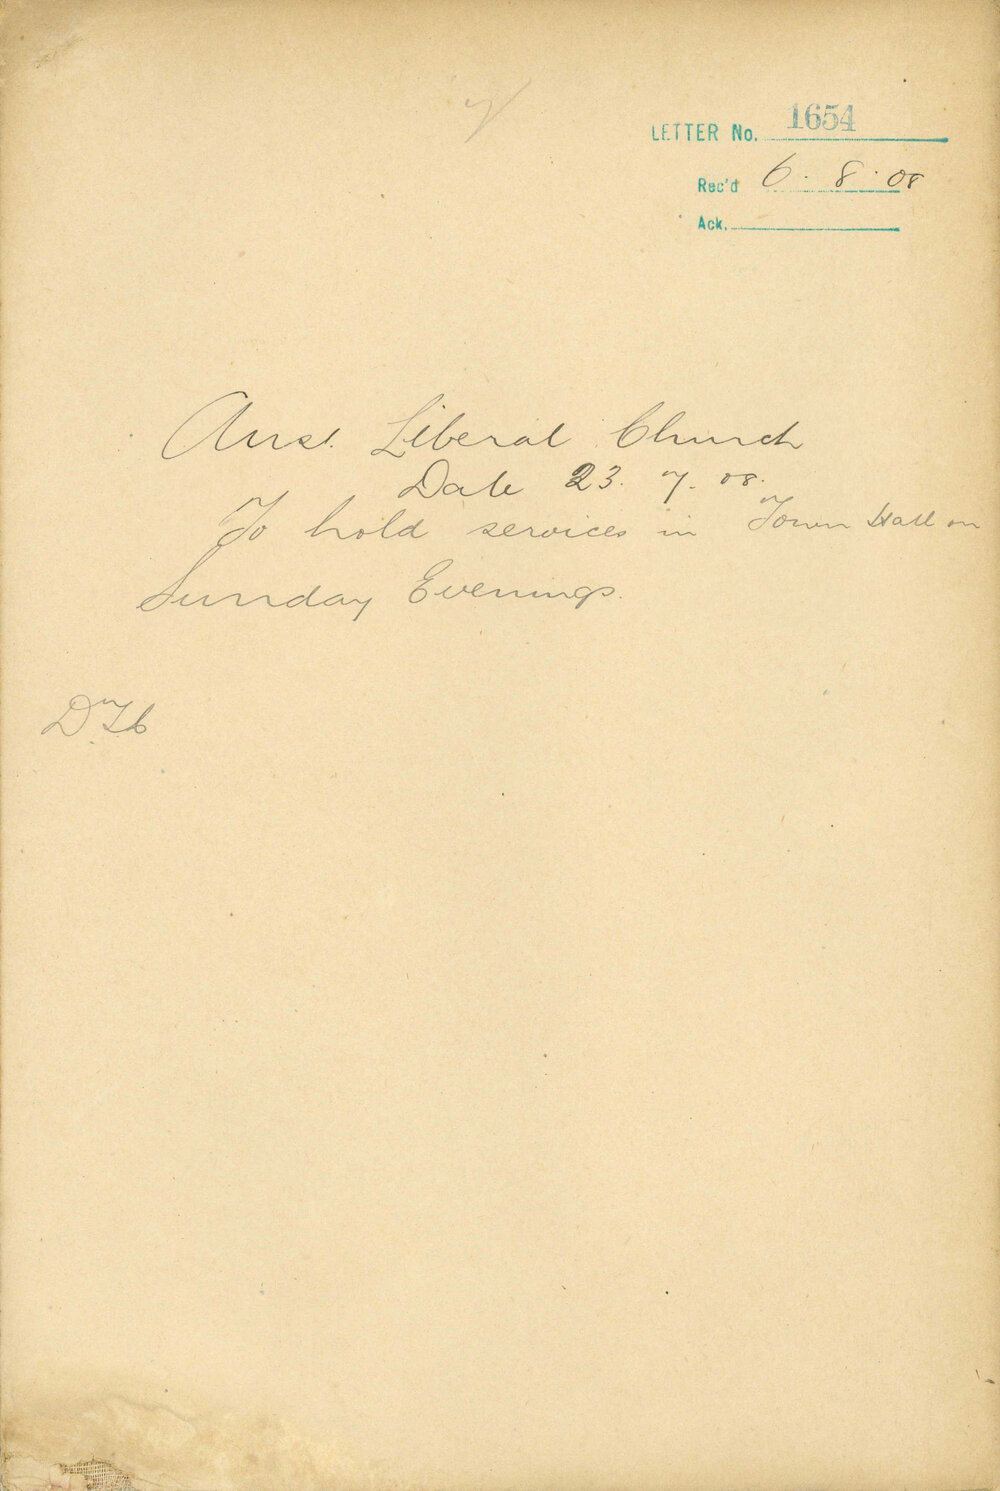 LETTER No. 1654
Rec'd 6. 8. 08
Ack.
Aust. Liberal Church
Date 23. 7. 08.
To hold services in Town Hall on
Sunday Evenings.